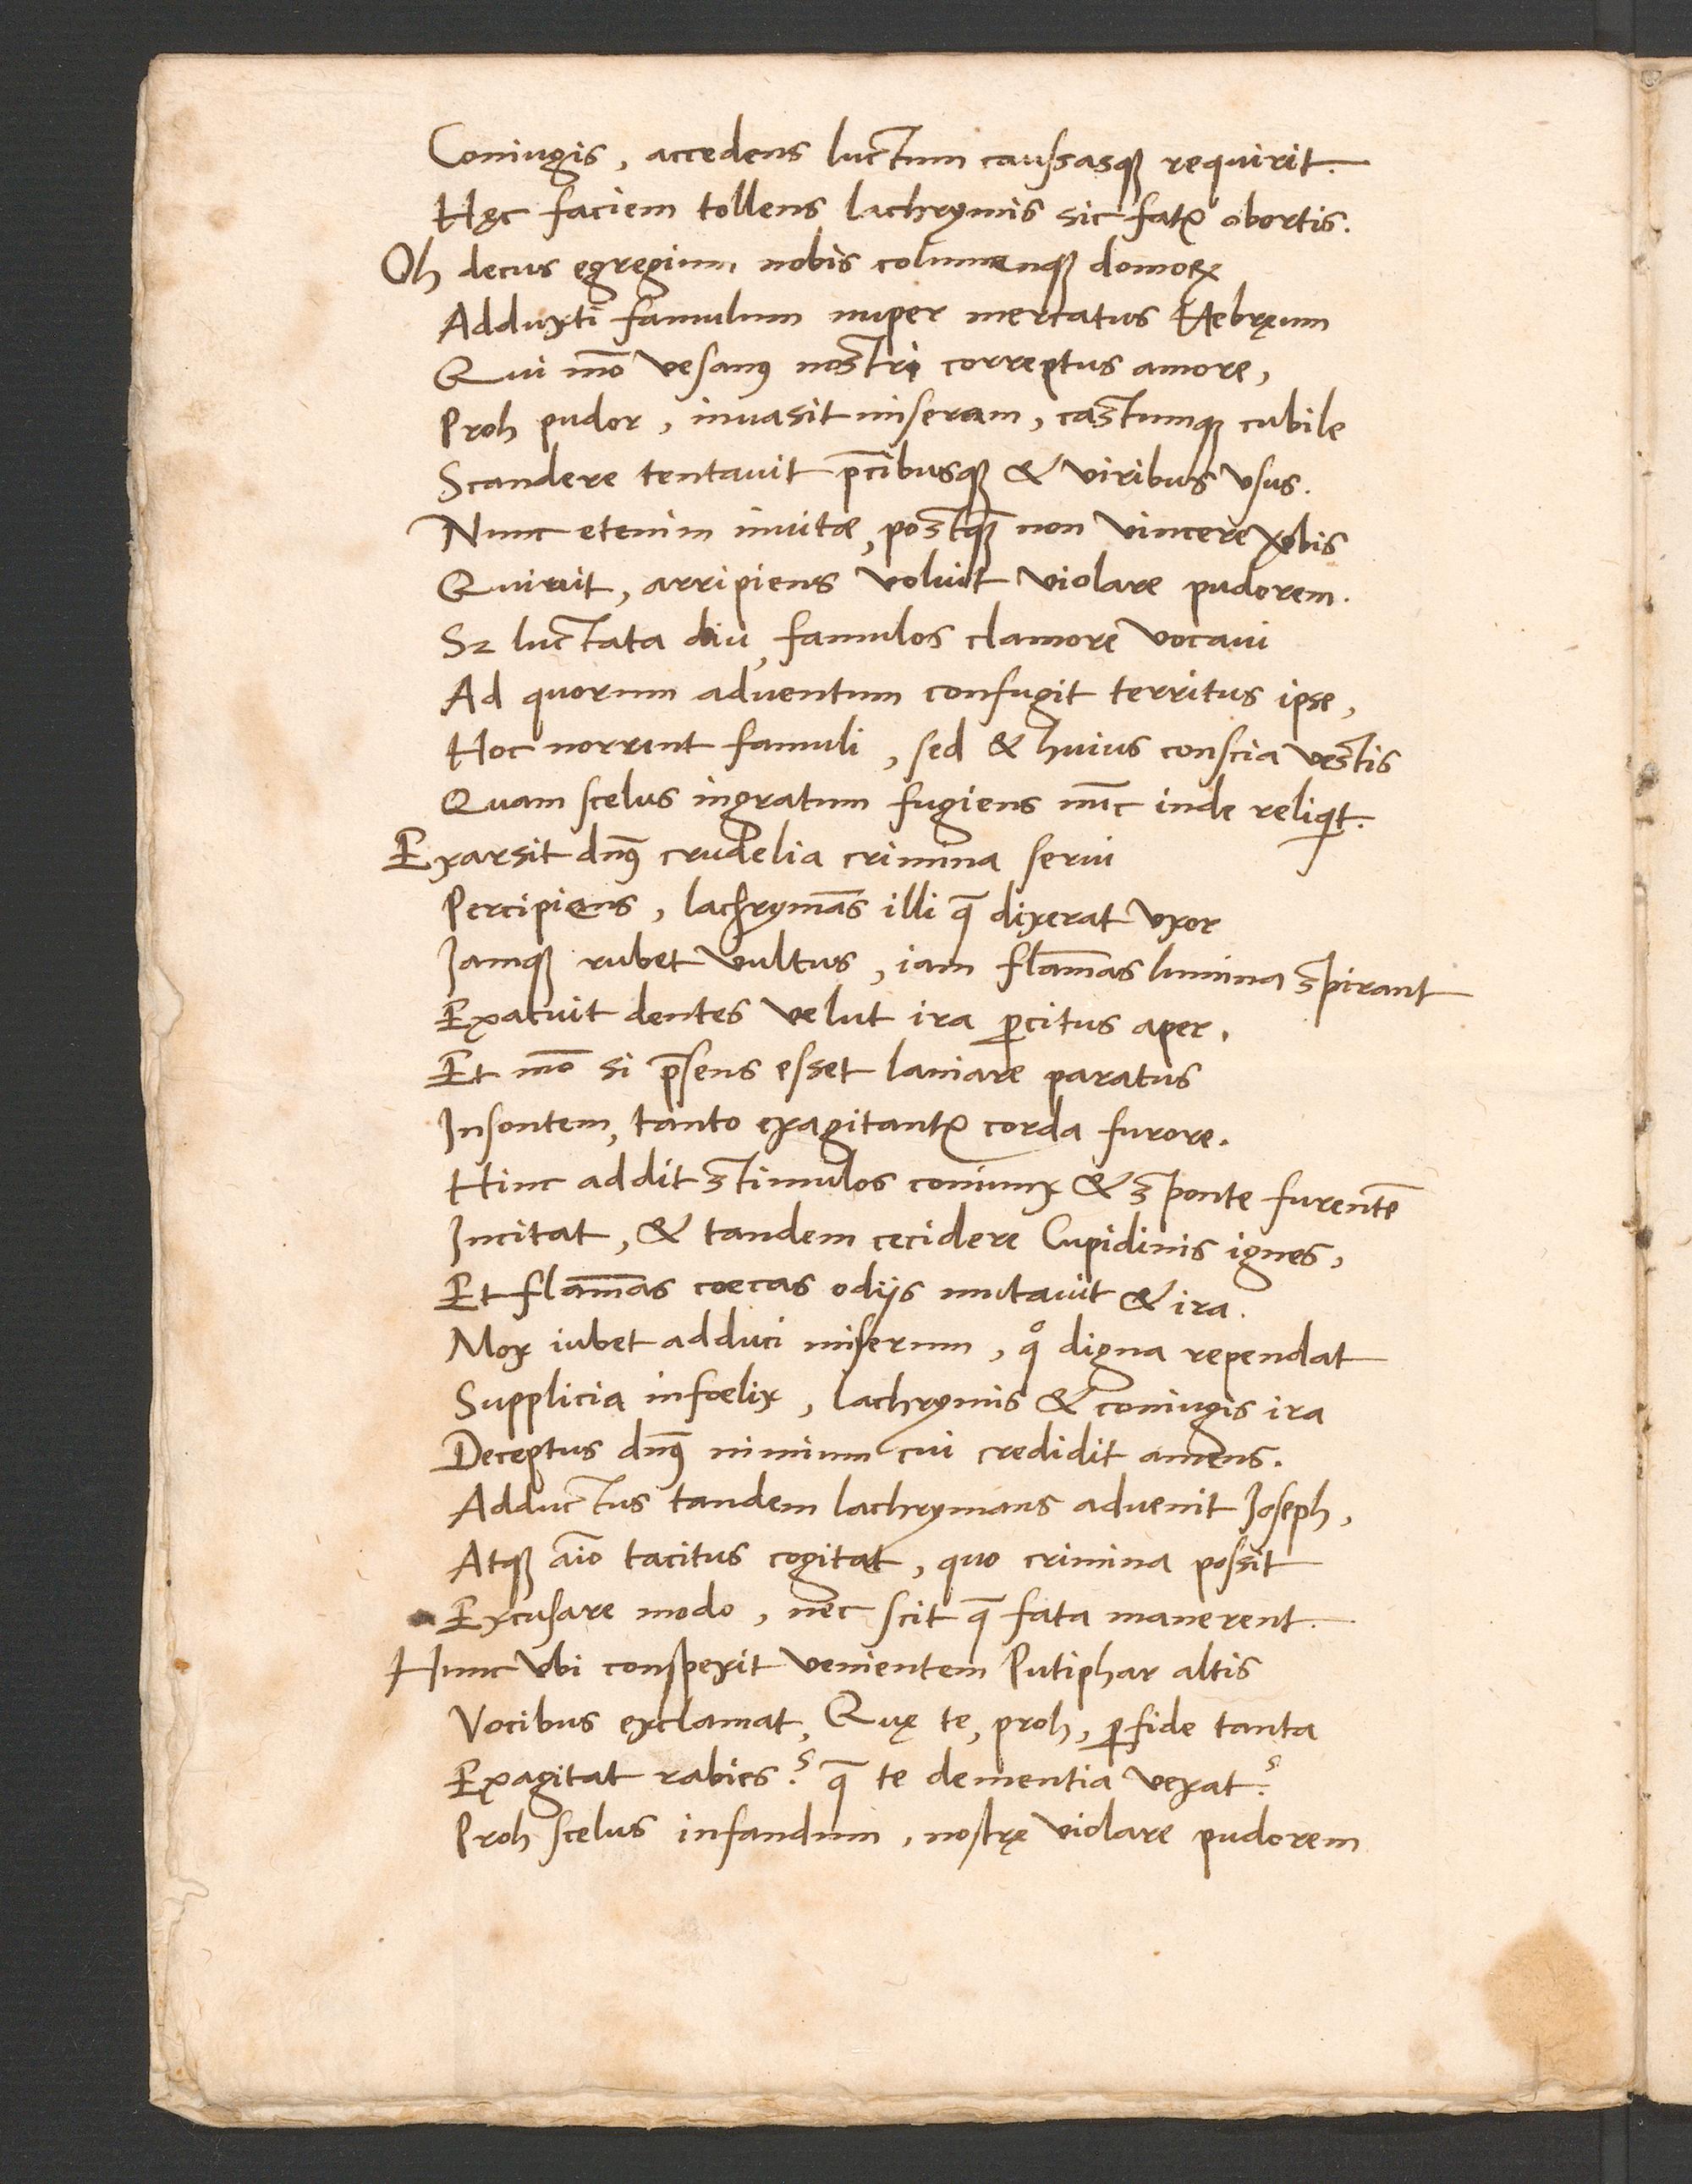 Coniugis, accedens luctum caussasqꝫ requirit.
Hęc faciem tollens lachrymis sic fatꝛ obortis.
Oh decus egregium nobis columenqꝫ domoꝝ
Adduxti famulum nuper mercatus Hebręum
Qui mō vesanꝰ nostri correptus amore,
Proh pudor, inuasit miseram, castumqꝫ cubile
Scandere tentauit p̄cibusqꝫ & viribus vsus.
Nunc etenim inuitæ, postqꝫ̄ non vincere v̄bis
Quiuit, arripiens voluit violare pudorem.
Sꝫ luctata diu, famulos clamore vocaui
Ad quorum aduentum confugit territus ipse,
Hoc norrent famuli, sed & huius conscia vestis
Quam scelus ingratum fugiens nūc inde reliqͥt.
Exarsit dn̄ꝰ crudelia crimina serui
Percipiens, lachrymās illi q̄ dixerat vxor
Iamqꝫ rubet vultus, iam flām̄as lumina spirant
Exacuit dentes velut ira ꝑcitus aper.
Et mō si p̄sens esset laniare paratus
Insontem, tanto exagitantꝛ corda furore.
Hinc addit stimulos coniunx & sponte furentē
Incitat, & tandem cecidere Cupidinis ignes,
Et flam̄as coecas odijs mutauit & ira.
Mox iubet adduci miserum, qͦ digna rependat
Supplicia infoelix, lachrymis & coniugis ira
Deceptus dn̄ꝰ nimium cui credidit amens.
Adductus tandem lachrymans aduenit Ioseph,
Atqꝫ aīo tacitus cogitat, quo crimina possit
Excusare modo, nec scit q̄ fata manerent.
Hunc vbi conspexit venientem Putiphar altis
Vocibus exclamat, Quę te, proh, ꝑfide tanta
Exagitat rabies? q̄ te dementia vexat?
Proh scelus infandum, nostrę violare pudorem